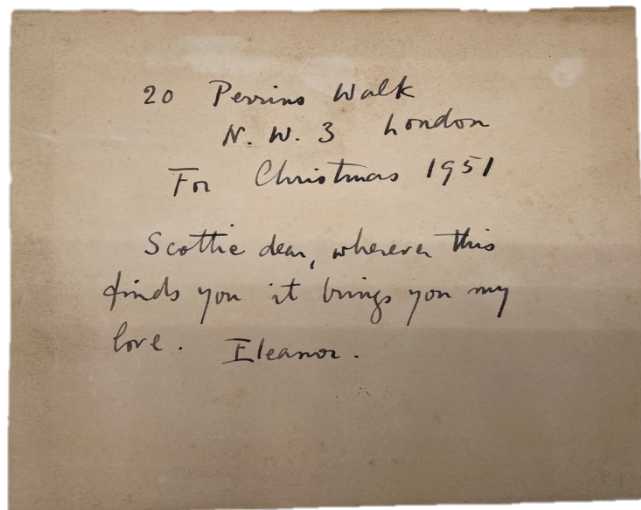 20 Perrins Walk
N. W. 3 London
For Christmas 1951
Scottie dear, wherever this
finds you it brings you my
love. Eleanor.